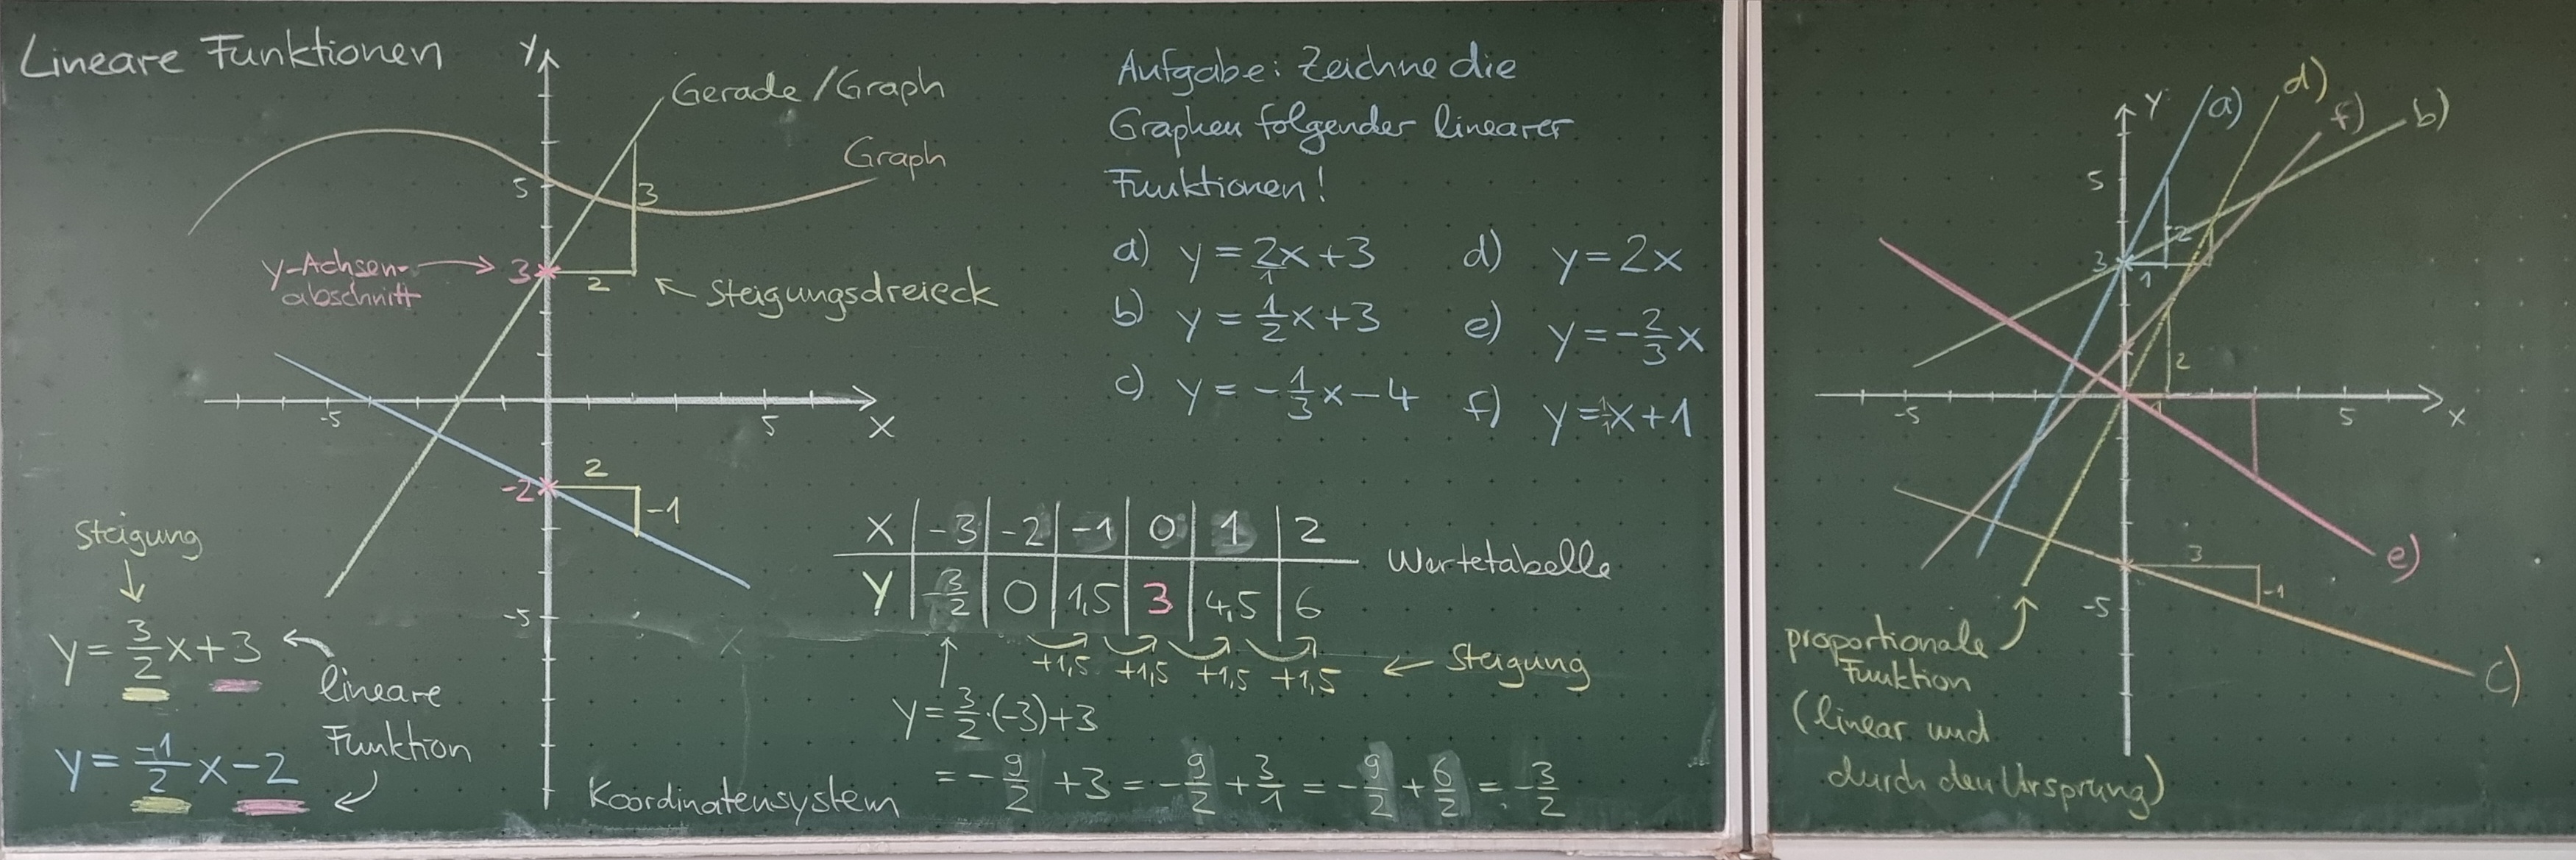 Lineare Funktionen
y
Gerade/Graph
Graph
5
3
y-Achsen-
abschnitt
3
2
Steigungsdreieck
-5
5
x
-2
2
-1
-5
Steigung
y = 3/2 x + 3
lineare
Funktion
y = -1/2 x - 2
Koordinatensystem
Aufgabe: Zeichne die
Graphen folgender linearer
Funktionen!
a) y = 2/1 x + 3
b) y = 1/2 x + 3
c) y = -1/3 x - 4
d) y = 2x
e) y = -2/3 x
f) y = 1/1 x + 1
x | -3 | -2 | -1 | 0 | 1 | 2
y | -3/2 | 0 | 1,5 | 3 | 4,5 | 6
Wertetabelle
+1,5 +1,5 +1,5 +1,5
Steigung
y = 3/2 · (-3) + 3
= -9/2 + 3 = -9/2 + 3/1 = -9/2 + 6/2 = -3/2
y
a)
d)
f)
b)
5
3
2
1
2
1
-5
5
x
e)
3
-1
-5
c)
proportionale
Funktion
(linear und
durch den Ursprung)